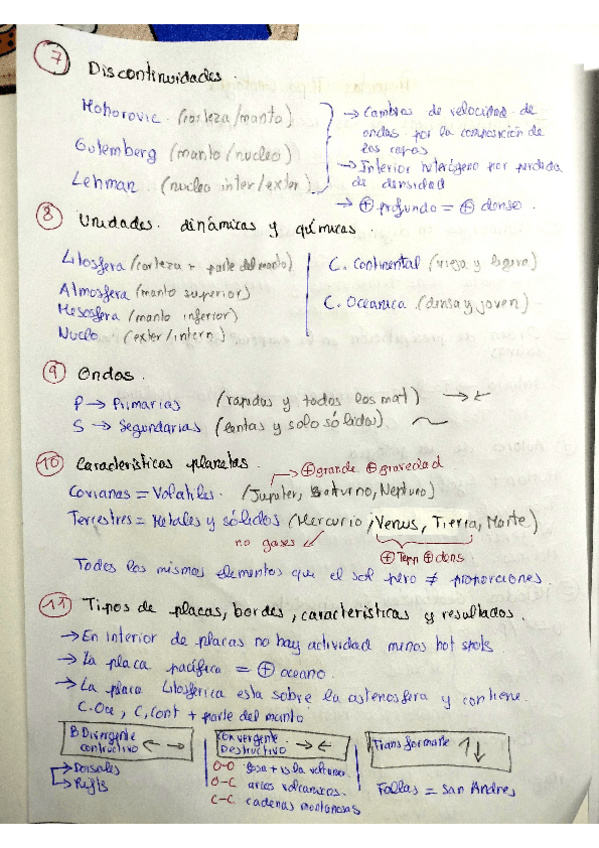 7 Discontinuidades.
Mohorovic (corteza/manto)
Gutemberg (manto/nucleo)
Lehman (nucleo inter/exter)
→ Cambios de velocidad de
ondas por la composición de
las capas
→ Interior heterógeno por perdida
de densidad
→ ⊕ profundo = ⊕ denso.
8 Unidades dinámicas y químicas.
Litosfera (corteza + parte del manto)
Atmosfera (manto superior)
Mesosfera (manto inferior)
Nucleo (exter/intern)
C. Continental (vieja y ligera)
C. Oceanica (densa y joven)
9 Ondas.
P → Primarias (rapidas y todos los mat) →←
S → Segundarias (lentas y solo sólidos)
10 Caracteristicas planetas.
→ ⊕ grande ⊕ gravedad
= Volatiles. (Jupiter, Saturno, Neptuno)
Terrestres = Metales y sólidos (Mercurio, Venus, Tierra, Marte)
no gases
⊕ Temp ⊕ dens
Todos los mismos elementos que el sol pero ≠ proporciones.
11 Tipos de placas, bordes, características y resultados.
→ En interior de placas no hay actividad menos hot spots
→ La placa pacífica = ⊕ oceano.
→ La placa Litosferica esta sobre la astenosfera y contiene.
C. Oce, C. Cont + parte del manto
B Divergente
contructivo ← →
→ Dorsales
→ Rifts
Convergente
Destructivo → ←
O-O fosa + isla volcanic
O-C arcos volcanicos.
C-C cadenas montañosas
Transformante ↑↓
Fallas = San Andres